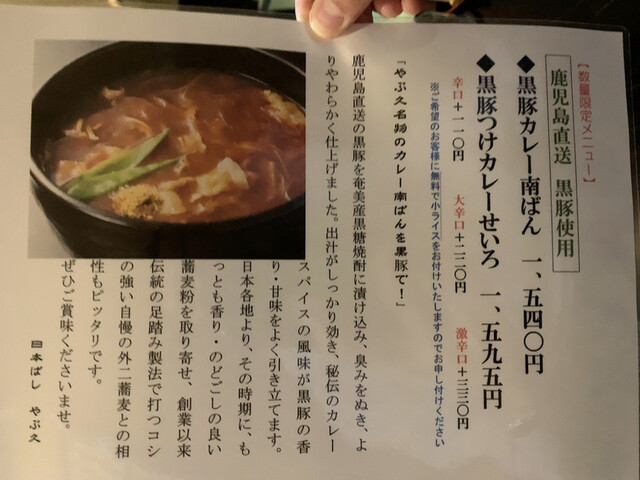 【数量限定メニュー】
鹿児島直送 黒豚使用
◆黒豚カレー南ばん 一、五四〇円
◆黒豚つけカレーせいろ 一、五九五円
辛口+一一〇円 大辛口+二二〇円 激辛口+三三〇円
※ご希望のお客様に無料で小ライスをお付けいたしますのでお申し付けください
「やぶ久名物のカレー南ばんを黒豚で！」
鹿児島直送の黒豚を奄美産黒糖焼酎に漬け込み、臭みをぬき、よ
りやわらかく仕上げました。出汁がしっかり効き、秘伝のカレー
スパイスの風味が黒豚の香
り・甘味をよく引き立てます。
日本各地より、その時期に、も
っとも香り・のどごしの良い
蕎麦粉を取り寄せ、創業以来
伝統の足踏み製法で打つコシ
の強い自慢の外二蕎麦との相
性もピッタリです。
ぜひご賞味くださいませ。
日本ばし やぶ久